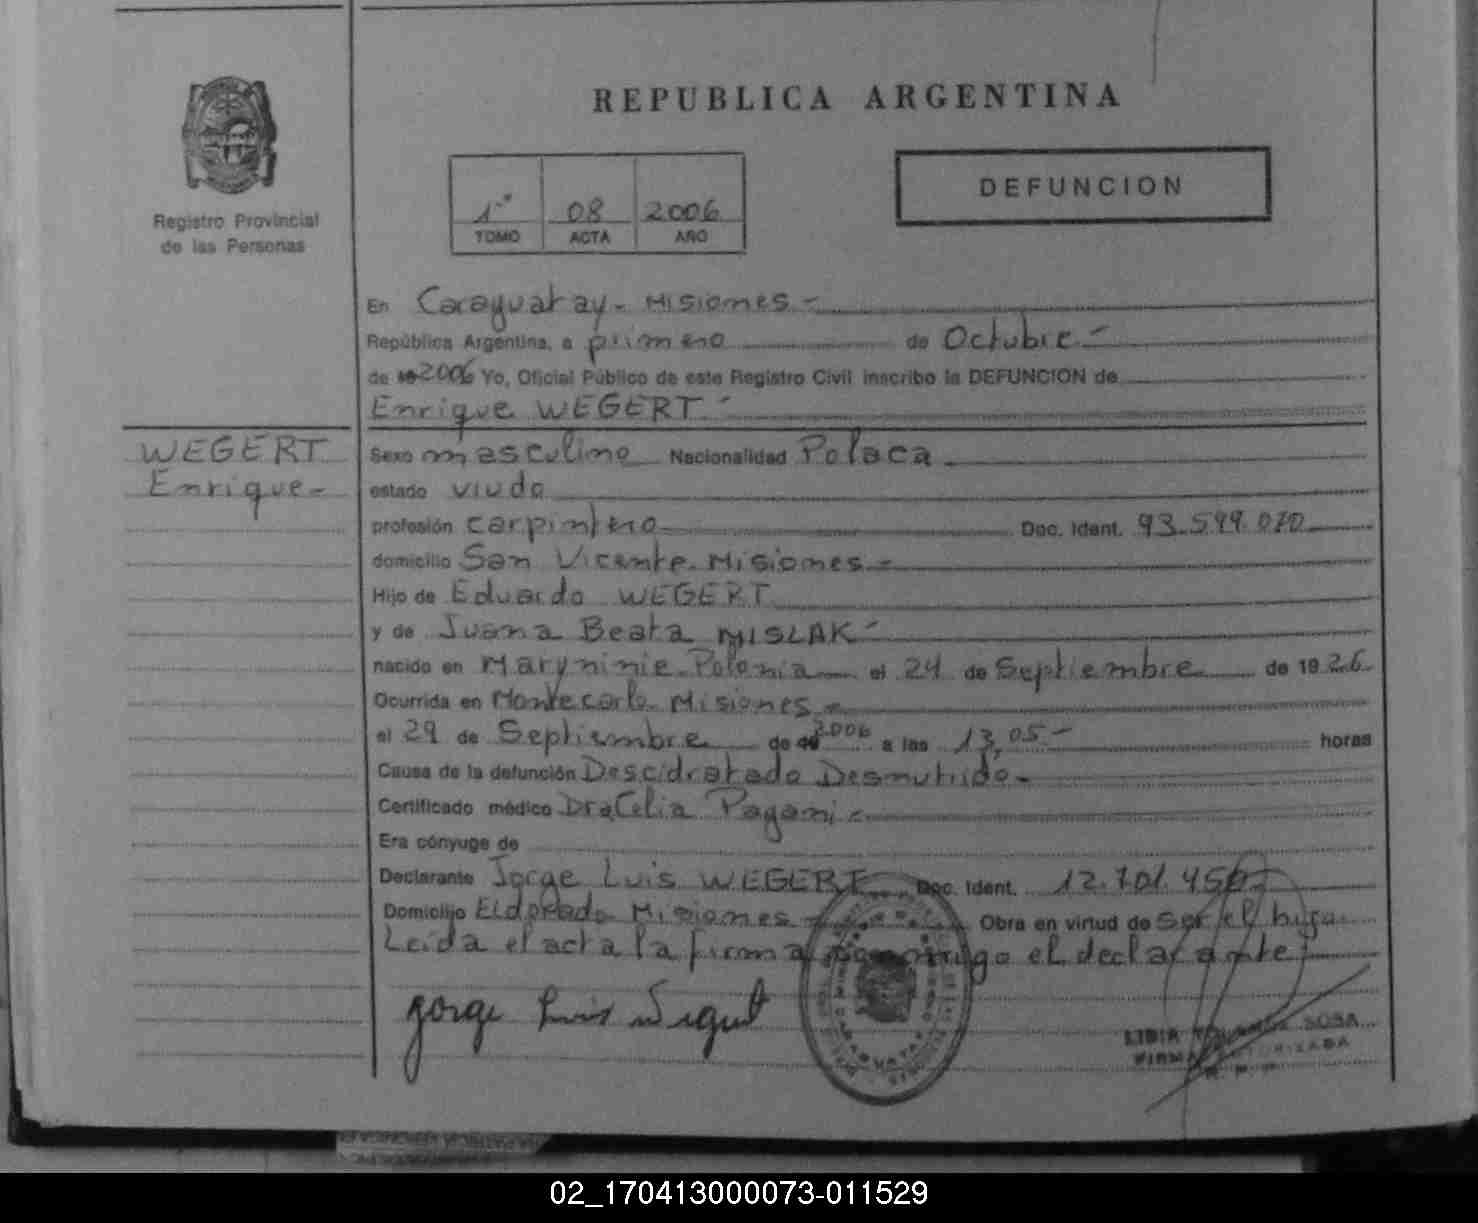 REPUBLICA ARGENTINA
Registro Provincial
de las Personas
1º 08 2006
TOMO ACTA AÑO
DEFUNCION
En Caraguatay - Misiones -
República Argentina, a primero de Octubre -
de 19 2006 Yo, Oficial Público de este Registro Civil inscribo la DEFUNCION de
Enrique WEGERT -
WEGERT
Enrique -
Sexo masculino Nacionalidad Polaca
estado viudo
profesión carpintero Doc. Ident. 93.599.070
domicilio San Vicente - Misiones -
Hijo de Eduardo WEGERT
y de Juana Beata MISLAK -
nacido en Maryninie - Polonia el 24 de Septiembre de 1926
Ocurrida en Montecarlo - Misiones -
el 29 de Septiembre de 19 2006 a las 13,05 - horas
Causa de la defunción Descidratado Desnutrido -
Certificado médico Dra Celia Pagani -
Era cónyuge de
Declarante Jorge Luis WEGERT Doc. Ident. 12.701.456
Domicilio Eldorado Misiones - Obra en virtud de ser el hijo
Leída el acta la firma conmigo el declarante
Jorge Luis Wegert
LIDIA SOSA
FIRMA AUTORIZADA
02_170413000073-011529